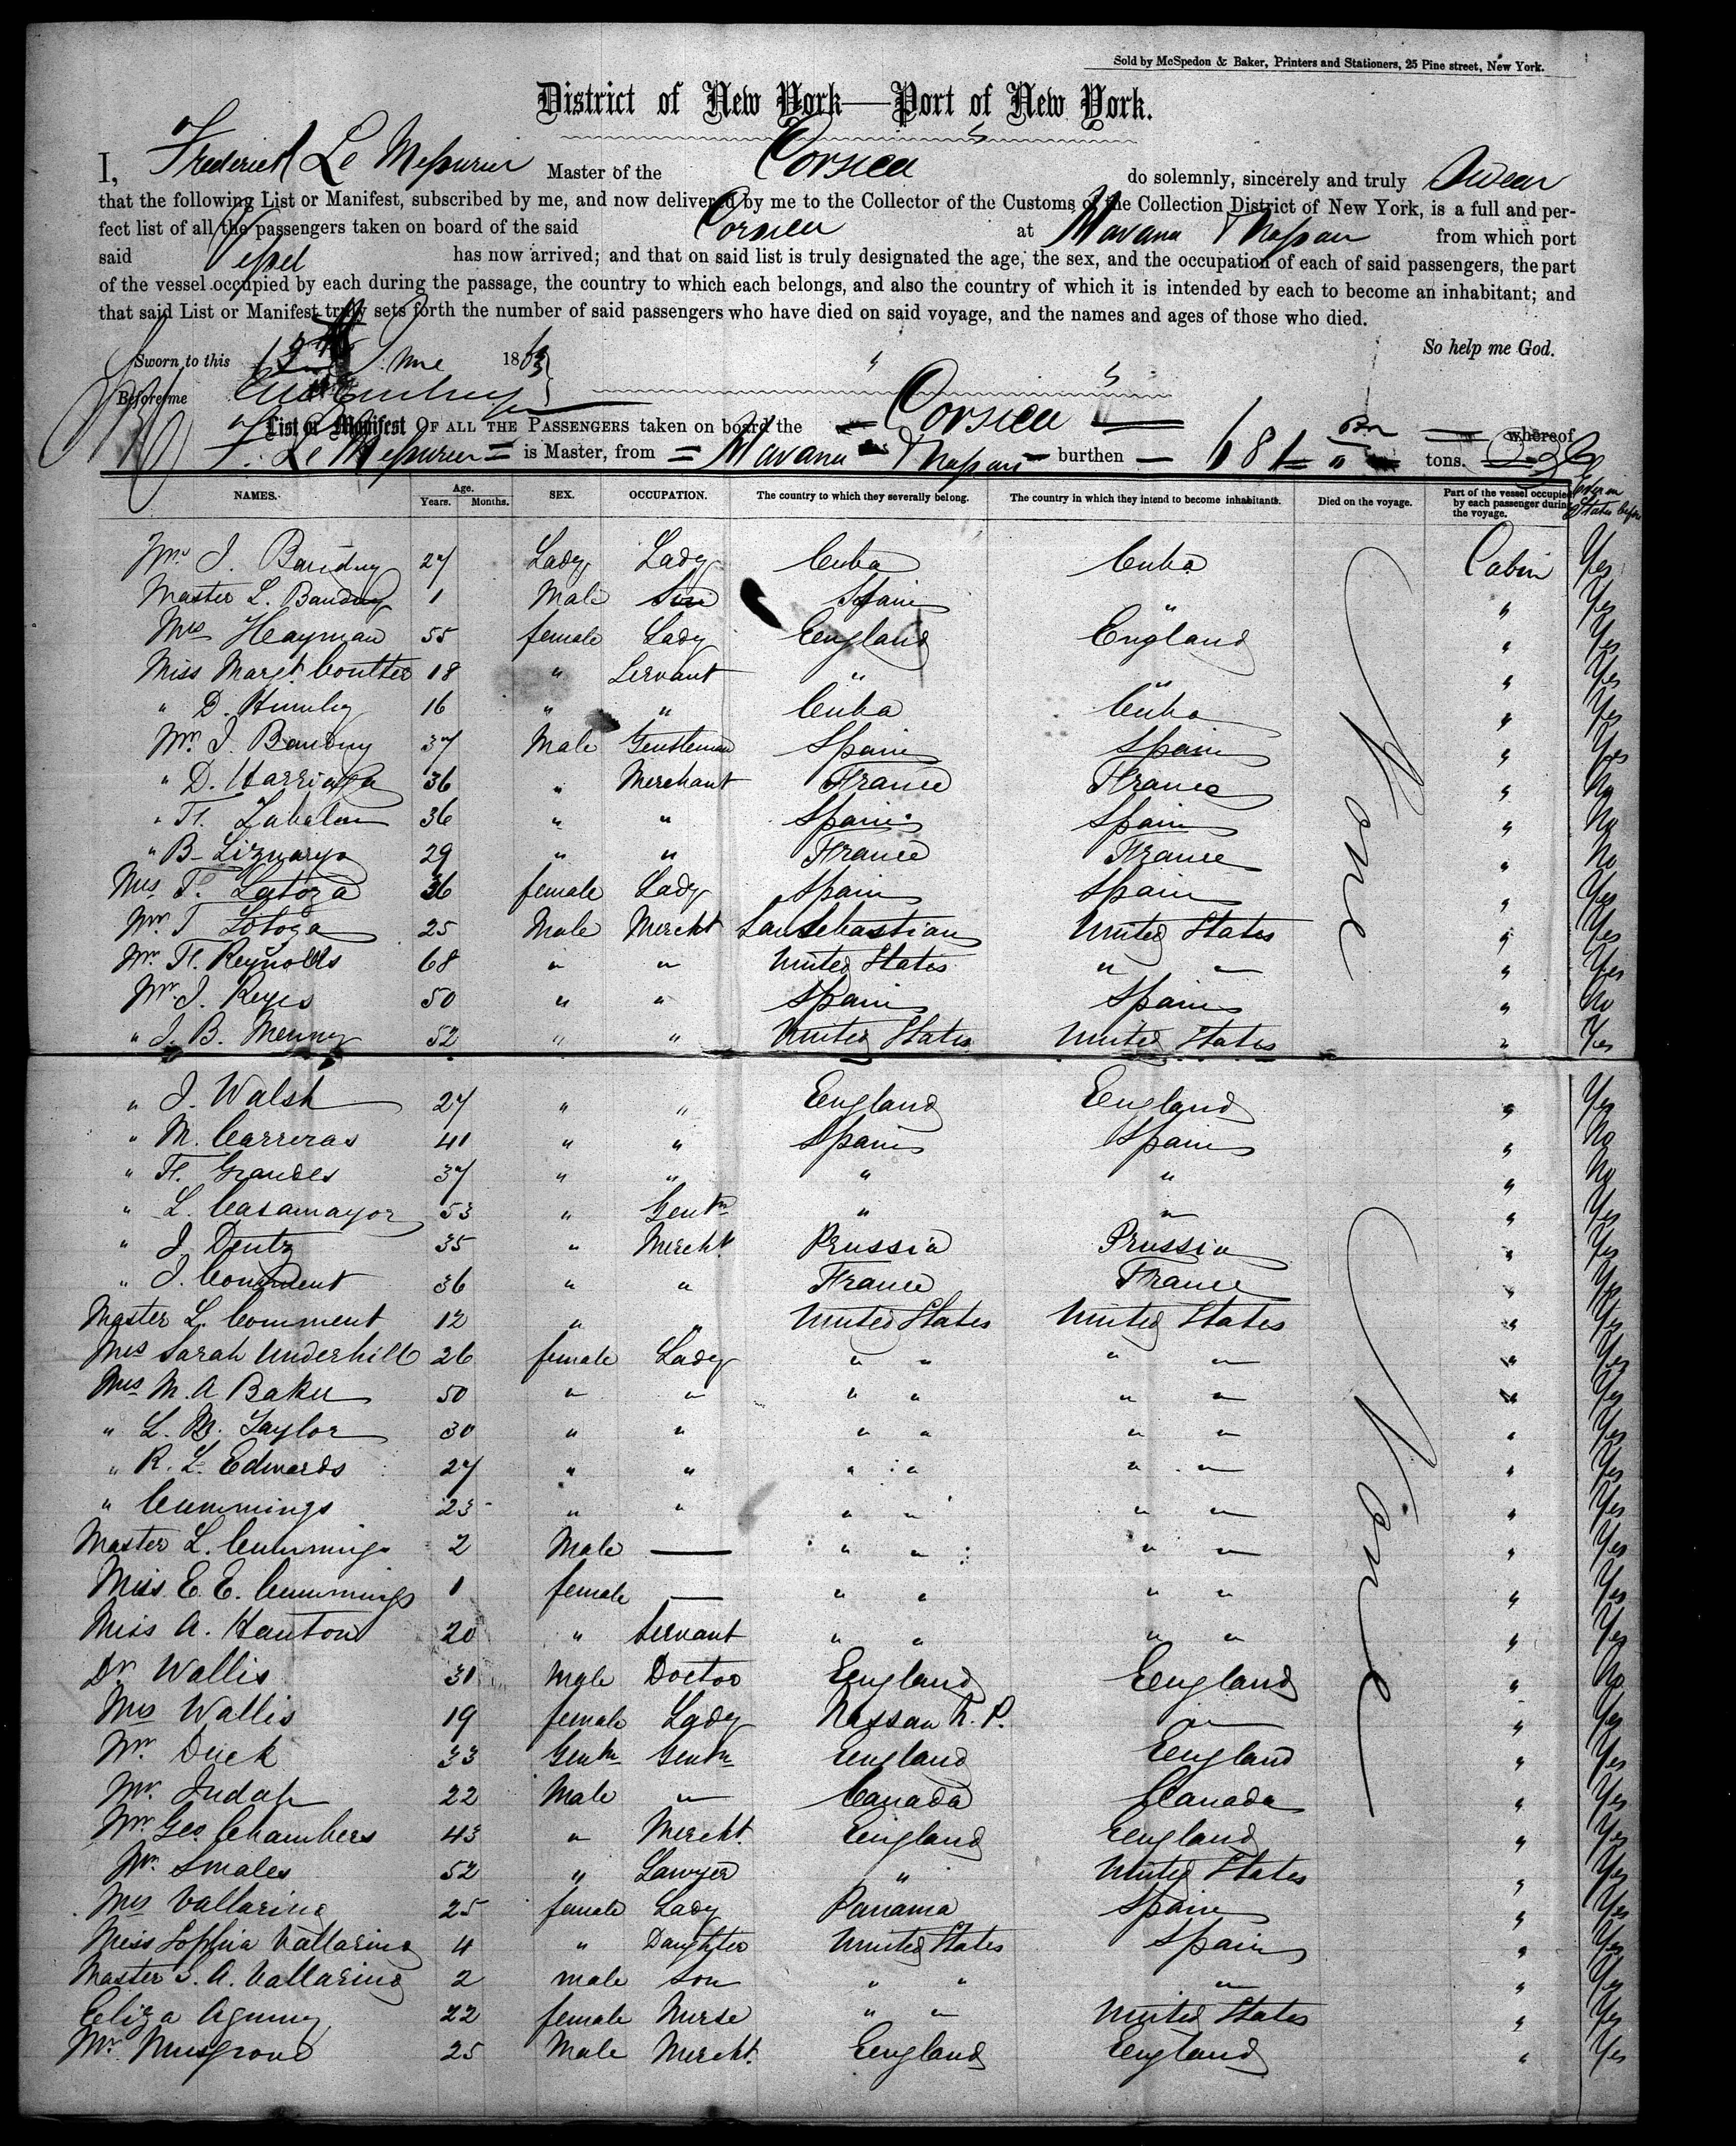 Sold by McSpedon & Baker, Printers and Stationers, 25 Pine street, New York.
District of New York—Port of New York.
I, Frederick Le Mesurier Master of the Corsica do solemnly, sincerely and truly Swear
that the following List or Manifest, subscribed by me, and now delivered by me to the Collector of the Customs of the Collection District of New York, is a full and per-
fect list of all the passengers taken on board of the said Corsica at Havana & Nassau from which port
said Vessel has now arrived; and that on said list is truly designated the age, the sex, and the occupation of each of said passengers, the part
of the vessel occupied by each during the passage, the country to which each belongs, and also the country of which it is intended by each to become an inhabitant; and
that said List or Manifest truly sets forth the number of said passengers who have died on said voyage, and the names and ages of those who died.
So help me God.
Sworn to this 13th June 1863
Before me
List or Manifest OF ALL THE PASSENGERS taken on board the Corsica whereof
F. Le Mesurier is Master, from Havana & Nassau burthen 681 tons.
NAMES. Age. Years. Months. SEX. OCCUPATION. The country to which they severally belong. The country in which they intend to become inhabitants. Died on the voyage. Part of the vessel occupied by each passenger during the voyage.
Mrs J. Bauduy 27 Lady Lady Cuba Cuba Cabin Yes
Master L. Bauduy 1 Male Son Spain " " Yes
Mrs Hayman 55 female Lady England England " Yes
Miss Margt. Coulter 18 " Servant " " " Yes
" D. 16 " " Cuba Cuba " Yes
Mr. J. Bauduy 37 Male Gentleman Spain Spain " Yes
" D. 36 " Merchant France France " No
" F. Zabalan 36 " " Spain Spain " No
" B. 29 " " France France " No
Mrs F. Latoza 36 female Lady Spain Spain " Yes
Mr. T. 25 Male Mercht San Sebastian United States " Yes
Mr. F. Reynolds 68 " " United States " " " Yes
Mr. J. Reyes 50 " " Spain Spain " No
" J. B. 52 " " United States United States " Yes
" J. Walsh 27 " " England England " Yes
" M. Carreras 41 " " Spain Spain " No
" F. Grandes 37 " " " " " No
" L. Casamayor 53 " Gentn " " " Yes
" J. Deutz 35 " Mercht Prussia Prussia " Yes
" J. Comment 36 " " France France " Yes
Master L. Comment 12 " " United States United States " Yes
Mrs Sarah Underhill 26 female Lady " " " " " Yes
Mrs M. A Baker 50 " " " " " " " Yes
" L. M. Taylor 30 " " " " " " " Yes
" R. L. Edwards 27 " " " " " " " Yes
" Cummings 23 " " " " " " " Yes
Master L. Cummings 2 Male — " " " " " Yes
Miss E. E. Cummings 1 female — " " " " " Yes
Miss A. Hanton 20 " Servant " " " " " Yes
Dr Wallis 30 male Doctor England England " No
Mrs Wallis 19 female Lady Nassau N. P. " " Yes
Mr. Duck 33 Gentn Gentn England England " Yes
Mr. Judah 22 Male " Canada Canada " Yes
Mr. Geo Chambers 43 " Mercht. England England " Yes
Mr. Smales 52 " Lawyer " United States " Yes
Mrs Vallarino 25 female Lady Panama Spain " Yes
Miss Sophia Vallarino 4 " Daughter United States Spain " Yes
Master S. A. Vallarino 2 male Son " " " " Yes
Eliza 22 female Nurse " " United States " Yes
Mr. Musgrove 25 Male Mercht. England England " Yes
None
None